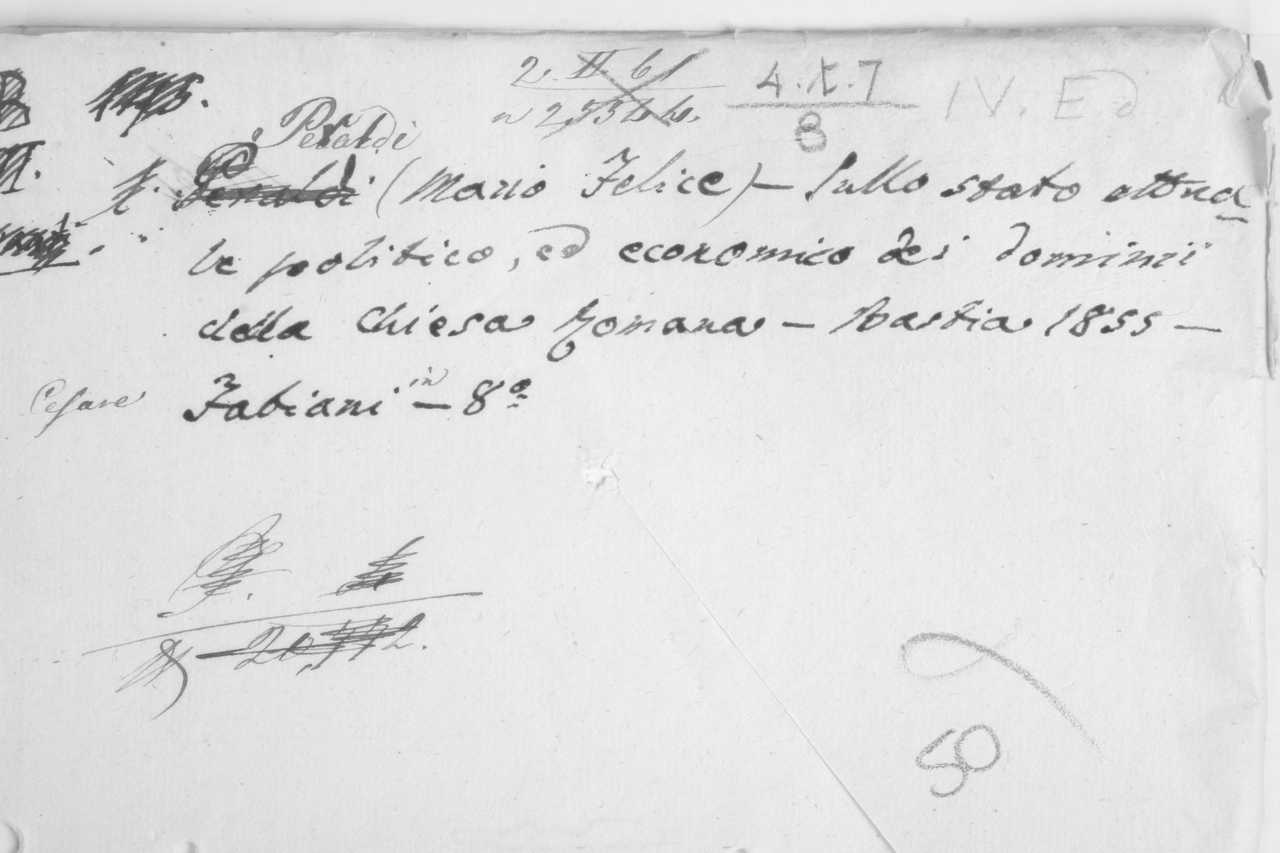 2. II 61
n 25344.
4.X.7
8
IV. Ed
Peraldi
(Mario Felice) – Sullo stato attua
le politico, ed economico dei dominii
della Chiesa Romana – Bastia 1855 –
Cesare Fabiani in – 8º
50